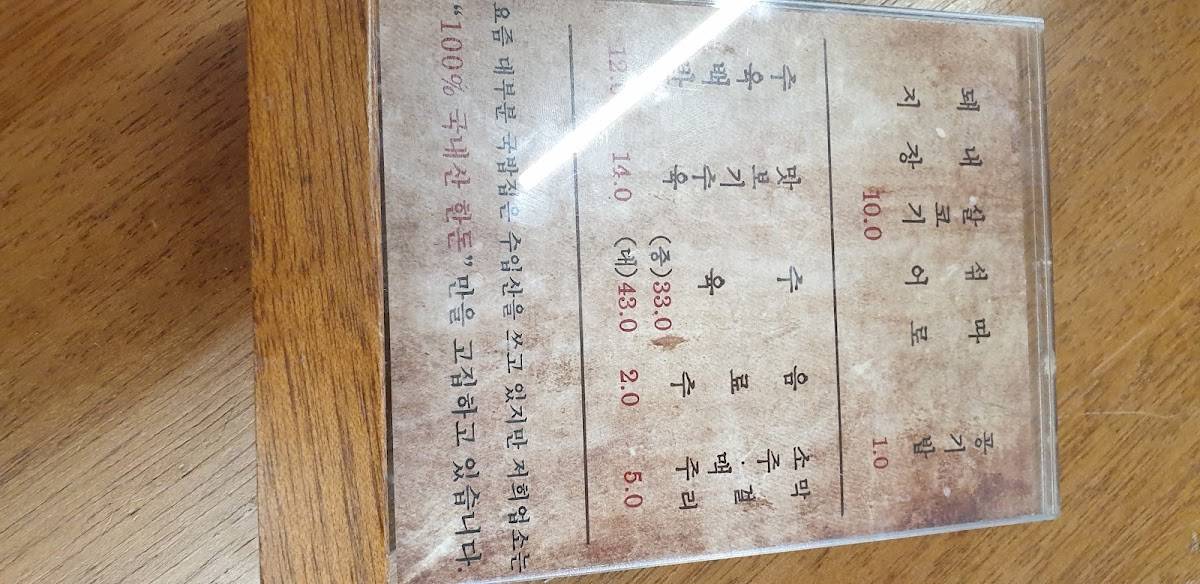 돼지
내장
살코기
섞어
따로
10.0
공기밥
1.0
수육백반
12.0
맛보기수육
14.0
수육
(중)33.0
(대)43.0
음료수
2.0
소주.맥주
막걸리
5.0
요즘 대부분 국밥집은 수입산을 쓰고 있지만 저희업소는
“100% 국내산 한돈”만을 고집하고 있습니다.